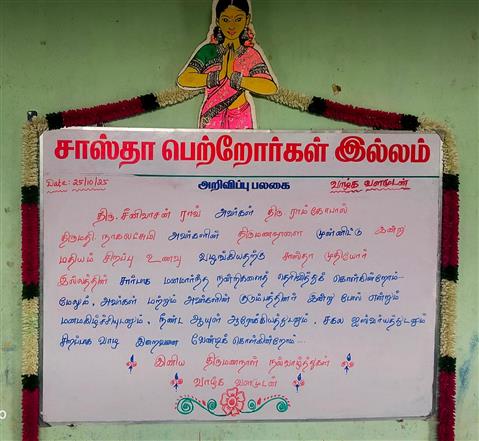 சாஸ்தா பெற்றோர்கள் இல்லம்
Date: 25/10/25 அறிவிப்பு பலகை வாழ்க வளமுடன்
திரு. சீனிவாசன் ராவ் அவர்கள் திரு. ராம் கோபால்
திருமதி. நாகலட்சுமி அவர்களின் திருமணநாளை முன்னிட்டு இன்று
மதியம் சிறப்பு உணவு வழங்கியதற்கு சாஸ்தா முதியோர்
இல்லத்தின் சார்பாக மனமார்ந்த நன்றிகளைத் தெரிவித்துக் கொள்கின்றோம்...
மேலும், அவர்கள் மற்றும் அவர்களின் குடும்பத்தினர் இன்று போல் என்றும்
மனமகிழ்ச்சியுடனும், நீண்ட ஆயுள் ஆரோக்கியத்துடனும், சகல ஐஸ்வர்யத்துடனும்
சிறப்பாக வாழ இறைவனை வேண்டிக் கொள்கின்றோம்...
இனிய திருமணநாள் நல்வாழ்த்துகள்
வாழ்க வளமுடன்